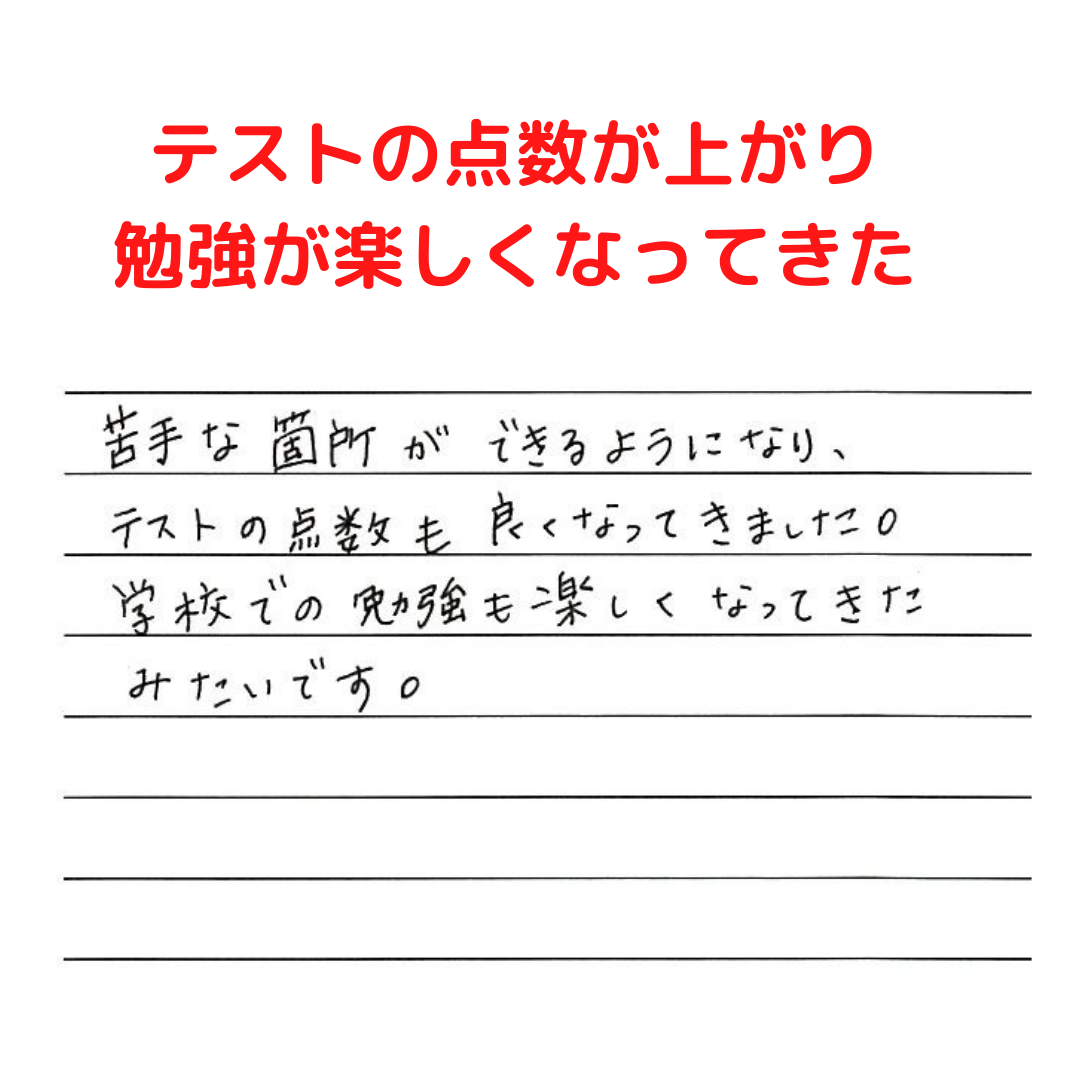 テストの点数が上がり
勉強が楽しくなってきた
苦手な箇所ができるようになり、
テストの点数も良くなってきました。
学校での勉強も楽しくなってきた
みたいです。